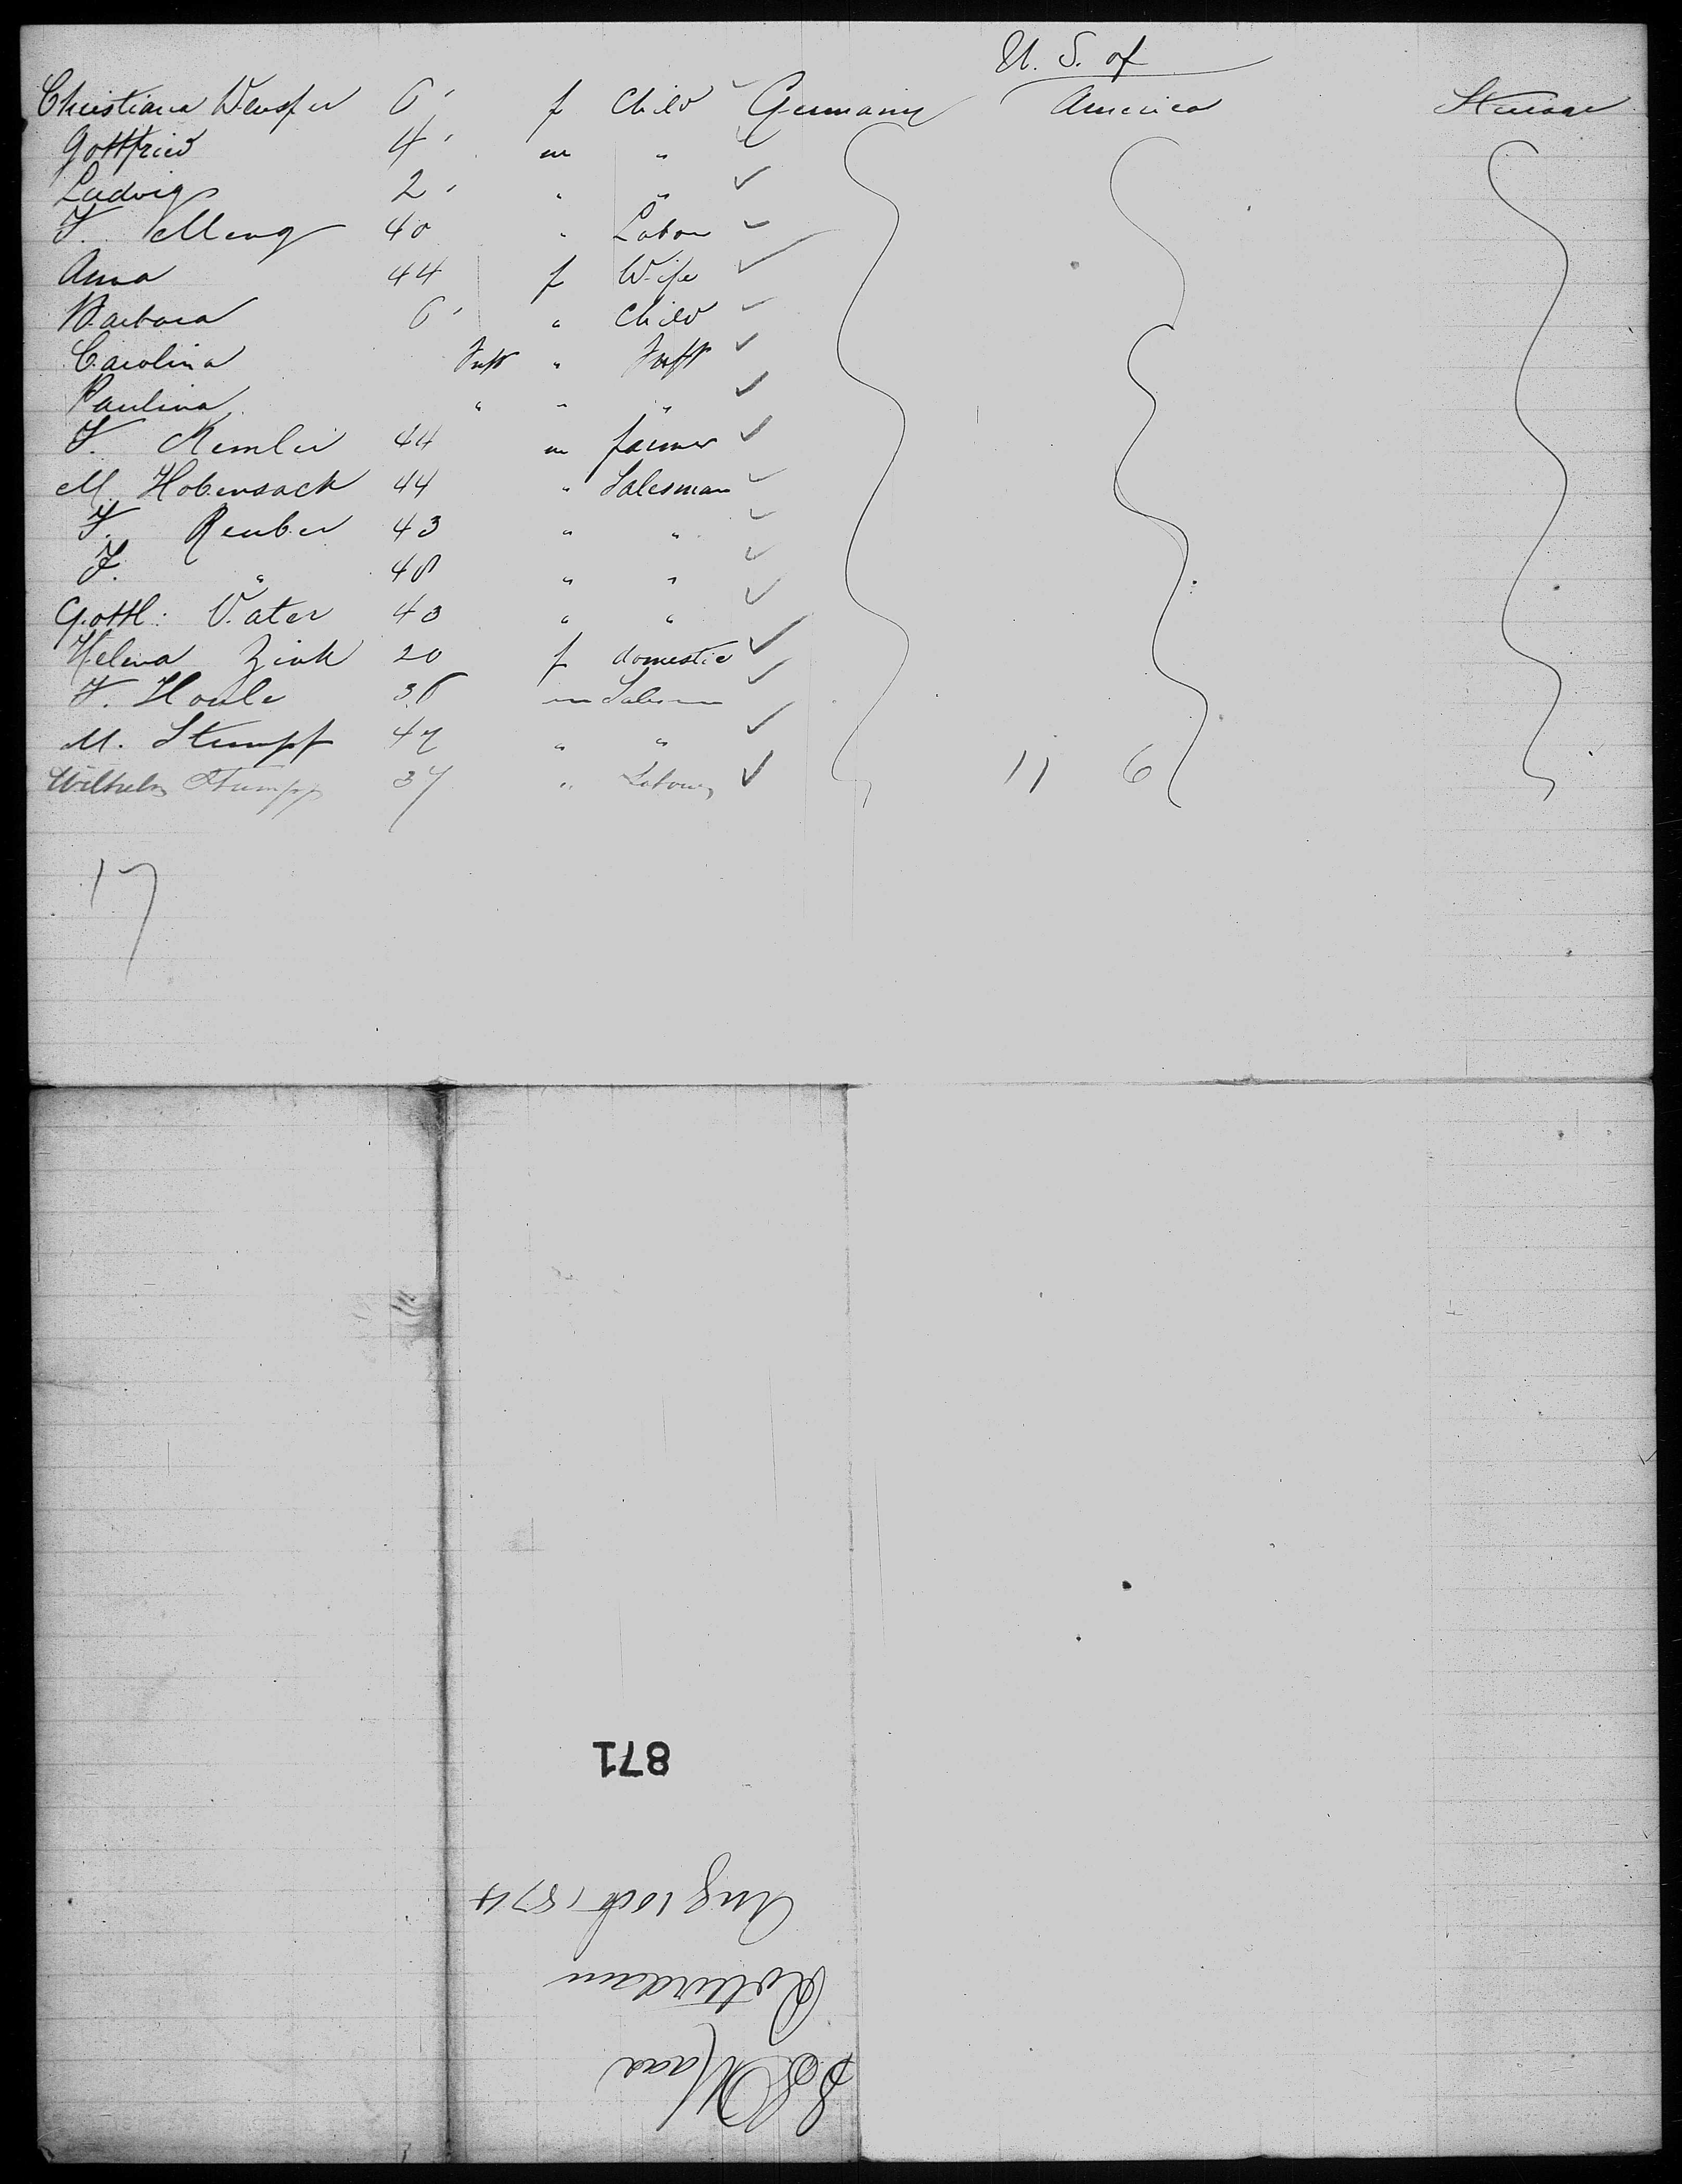 U. S. of
Christiana 6 f Child Germany America Steerage
Gottfried 4 m "
Ludwig 2 " "
F. Meng 40 " Labour
Anna 44 f Wife
Barbara 6 " Child
Carolina Inft " Inft
Paulina " " "
F. Kemler 44 m farmer
M. Hobensack 44 " Salesman
F. Reuber 43 " "
F. " 48 " "
Gottl: Vater 43 " "
Helena Zink 20 f domestic
F. Houle 36 m Salesm
M. Stumpf 47 " "
Wilhelm Stumpf 37 " Labour 11 6
17
SS Maas
Rotterdam
Aug 10th 1874
871